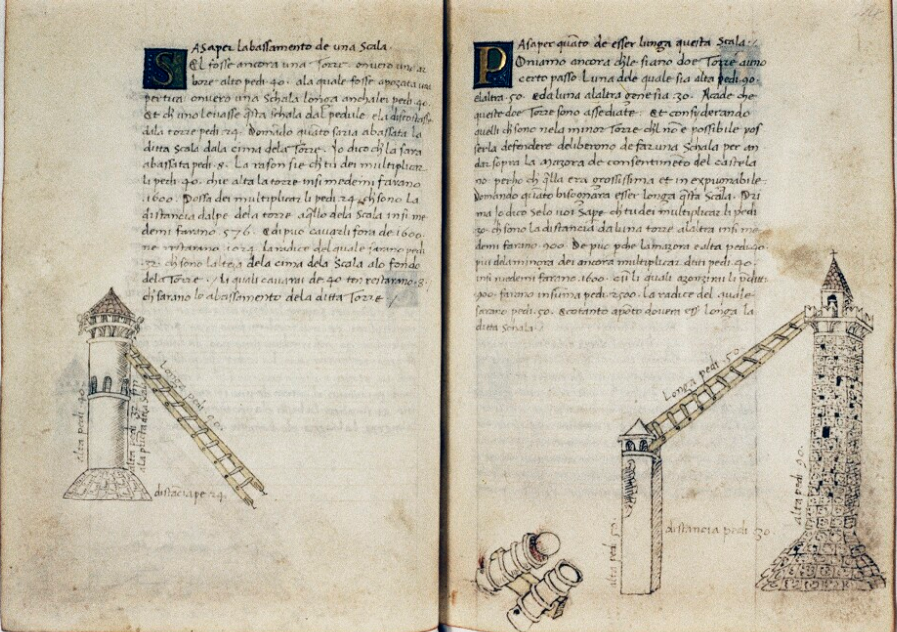 SASaper labassamento de una Scala.
El fosse ancora una Torre. onvero uno ar
bore alto pedi. 40. ala quale fosse apozata una
pertica onvero una Schala longa anchalei pedi. 40.
Et chi no levasse q̃sta schala dal pedule. e la discostasse
dala torre pedi. 24. Domãdo quãto saria abassata la
ditta Scala dala cima dela Torre. Jo dico ch̃ la sara
abassata pedi. 8. La rason sie ch̃ tu dei multiplicar
li pedi. 40. che alta la torre insi medemi farano
.1600. Possa dei multiplicar li pedi. 24. ch̃ sono la
distancia dal pe dela torre a q̃llo dela Scala in si me
demi farano. 576. Et di puo cavarli fora de. 1600.
ne restarano. 1024. la radice del quale farano pedi
32. ch̃ sono lalteza dela cima dela Scala alo fondo
dela Torre. Li quali cavarai de 40 ten restarano. 8.
ch̃ sarano lo abassamento dela ditta Torre
alta pedi 40
Longa pedi 40.
distãcia pe 24
PASaper quãto de esser lunga questa Scala.
Oniamo ancora ch̃le siano doe Torre a uno
certo passo Luna dele quale sia alta pedi. 90.
elaltra. 50. & da luna alaltra gene sia. 30. Acade che
queste doe Torre sono assediate. Et consyderando
quelli ch̃ sono nela minor Torre ch̃l nõ e possibile pos
serla defendere deliberono de far una Schala per an
dar sopra la mazora de consentimẽto del castela
no perho ch̃ q̃lla era grossissima et in expugnabile.
Domando quãto bisognara esser longa q̃sta Scala. Pri
ma Jo dico Se lo voi Sape. ch̃ tu dei multiplicar li pedi
30. ch̃ sono la distancia da luna torre alaltra insi me
demi farano. 900. De puo p̃che la mazora e alta pedi. 40.
piu dela minora dei ancora multiplicar ditti pedi. 40.
insi medemi farano. 1600. cũ li quali azonzini li p̃ditti
900. farano insuma pedi. 2500. la radice del quale
sarano pedi. 50. & cotanto aponto dovera ess̃ longa la
ditta Schala.
Longa pedi 50
alta pedi 50
distancia pedi 30
alta pedi 90.